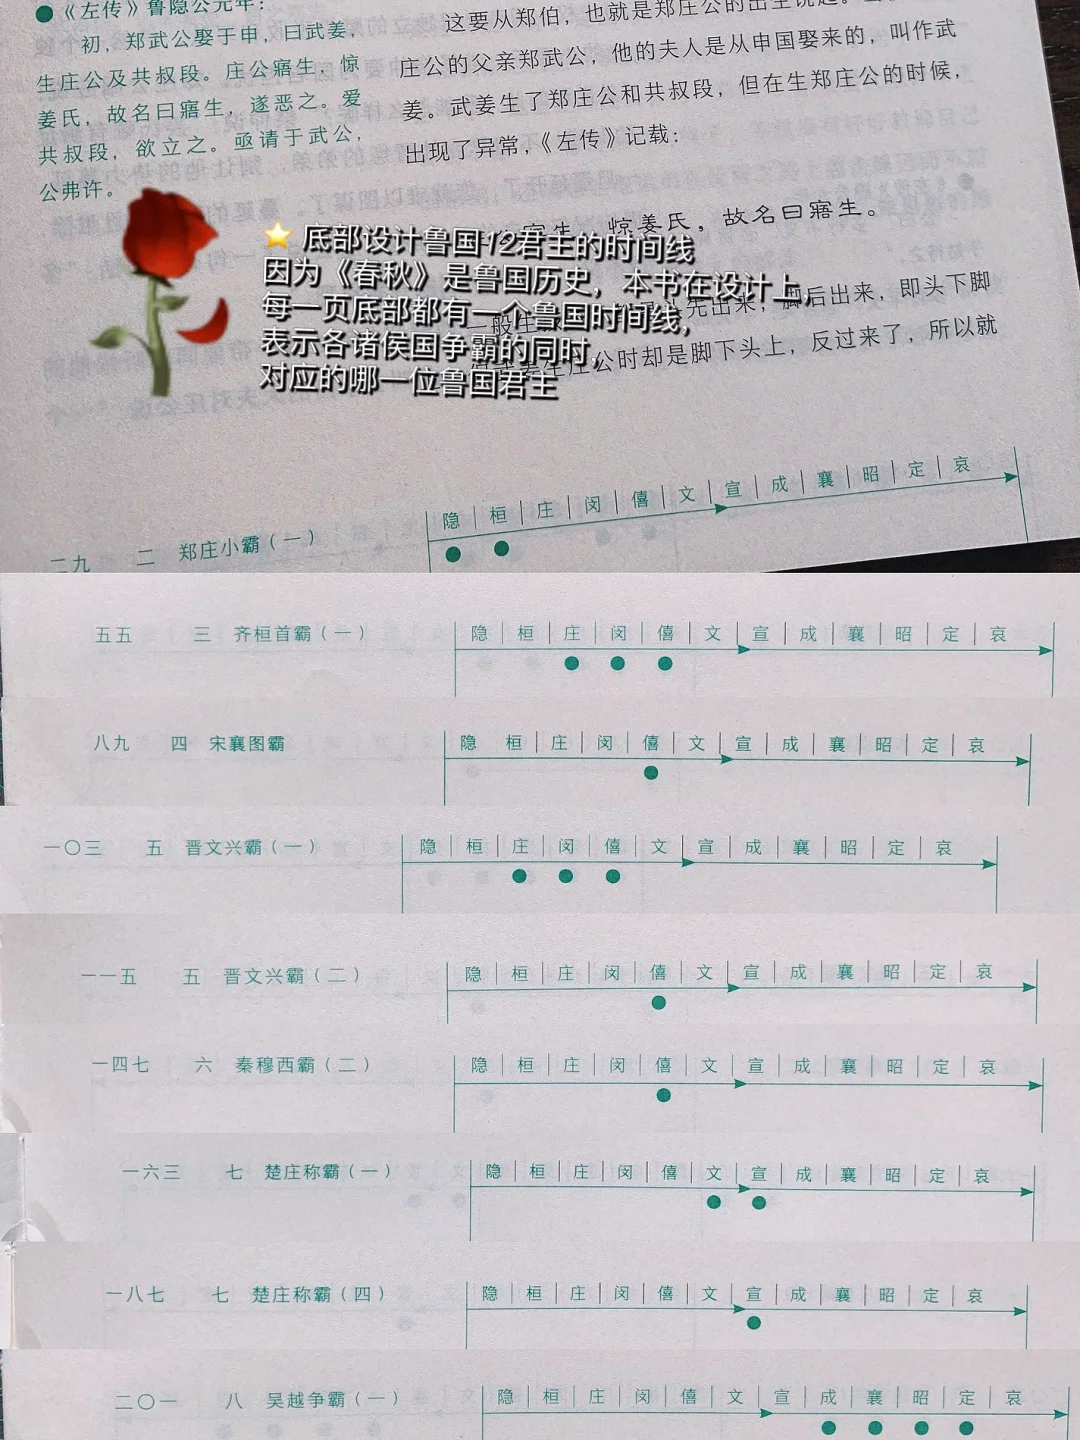 《左传》鲁隐公元年：
初，郑武公娶于申，曰武姜，
生庄公及共叔段。庄公寤生，惊
姜氏，故名曰寤生，遂恶之。爱
共叔段，欲立之。亟请于武公，
公弗许。
这要从郑伯，也就是郑庄公的出生说起。
庄公的父亲郑武公，他的夫人是从申国娶来的，叫作武
姜。武姜生了郑庄公和共叔段，但在生郑庄公的时候，
出现了异常，《左传》记载：
惊姜氏，故名曰寤生。
先出来，脚后出来，即头下脚
生庄公时却是脚下头上，反过来了，所以就
⭐ 底部设计鲁国12君主的时间线
因为《春秋》是鲁国历史，本书在设计上，
每一页底部都有一个鲁国时间线，
表示各诸侯国争霸的同时，
对应的哪一位鲁国君主
二九 二 郑庄小霸（一） 隐 桓 庄 闵 僖 文 宣 成 襄 昭 定 哀
五五 三 齐桓首霸（一） 隐 桓 庄 闵 僖 文 宣 成 襄 昭 定 哀
八九 四 宋襄图霸 隐 桓 庄 闵 僖 文 宣 成 襄 昭 定 哀
一〇三 五 晋文兴霸（一） 隐 桓 庄 闵 僖 文 宣 成 襄 昭 定 哀
一一五 五 晋文兴霸（二） 隐 桓 庄 闵 僖 文 宣 成 襄 昭 定 哀
一四七 六 秦穆西霸（二） 隐 桓 庄 闵 僖 文 宣 成 襄 昭 定 哀
一六三 七 楚庄称霸（一） 隐 桓 庄 闵 僖 文 宣 成 襄 昭 定 哀
一八七 七 楚庄称霸（四） 隐 桓 庄 闵 僖 文 宣 成 襄 昭 定 哀
二〇一 八 吴越争霸（一） 隐 桓 庄 闵 僖 文 宣 成 襄 昭 定 哀